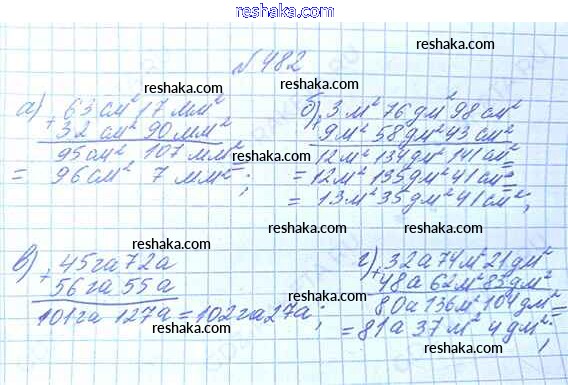 reshaka.com
№482
reshaka.com
reshaka.com
reshaka.com
а) + 63 см² 17 мм²
32 см² 90 мм²
95 см² 107 мм² =
= 96 см² 7 мм²;
reshaka.com
б) + 3 м² 76 дм² 98 см²
9 м² 58 дм² 43 см²
12 м² 134 дм² 141 см² =
= 12 м² 135 дм² 41 см² =
= 13 м² 35 дм² 41 см²;
reshaka.com
reshaka.com
reshaka.com
reshaka.com
reshaka.com
в) + 45 га 72 а
56 га 55 а
101 га 127 а = 102 га 27 а;
reshaka.com
г) + 32 а 74 м² 21 дм²
48 а 62 м² 83 дм²
80 а 136 м² 104 дм² =
= 81 а 37 м² 4 дм²;
reshaka.com
reshaka.com